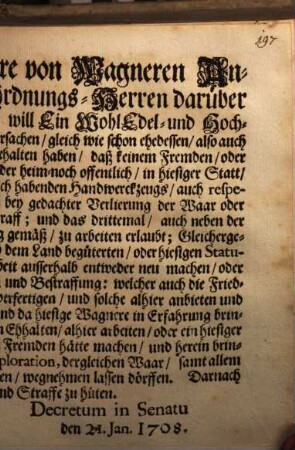 197
re von Wagneren An-
ordnungs-Herren darüber
will Ein WohlEdel- und Hoch-
rsachen / gleich wie schon ehedessen / also auch
ehalten haben / daß keinem Fremden / oder
der heim- noch offentlich / in hiesiger Statt /
ch habenden Handwerckzeugs / auch respe-
bey gedachter Verlierung der Waar oder
raff; und das drittemal / auch neben der
g gemäß / zu arbeiten erlaubt; Gleicherge-
dem Land begüterten / oder hiesigen Statu-
beit ausserhalb entweder neu machen / oder
und Bestraffung: welcher auch die Fried-
verfertigen / und solche alhier anbieten und
nd da hiesige Wagnere in Erfahrung brin-
n Ehhalten / alhier arbeiten / oder ein hiesiger
Fremden hätte machen / und herein brin-
xploration, dergleichen Waar / samt allem
en / wegnehmen lassen dörffen. Darnach
nd Straffe zu hüten.
Decretum in Senatu
den 24. Jan. 1708.